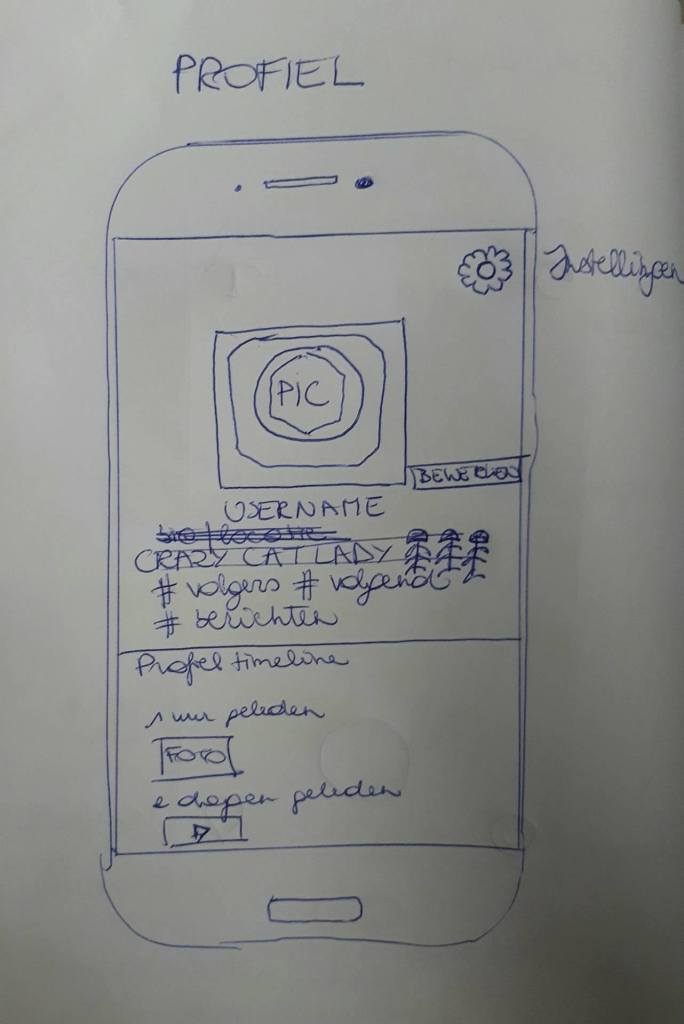 PROFIEL
Instellingen
PIC
BEWERKEN
USERNAME
bio/locatie
CRAZY CAT LADY
# volgers # volgend
# berichten
Profiel timeline
1 uur geleden
FOTO
2 dagen geleden